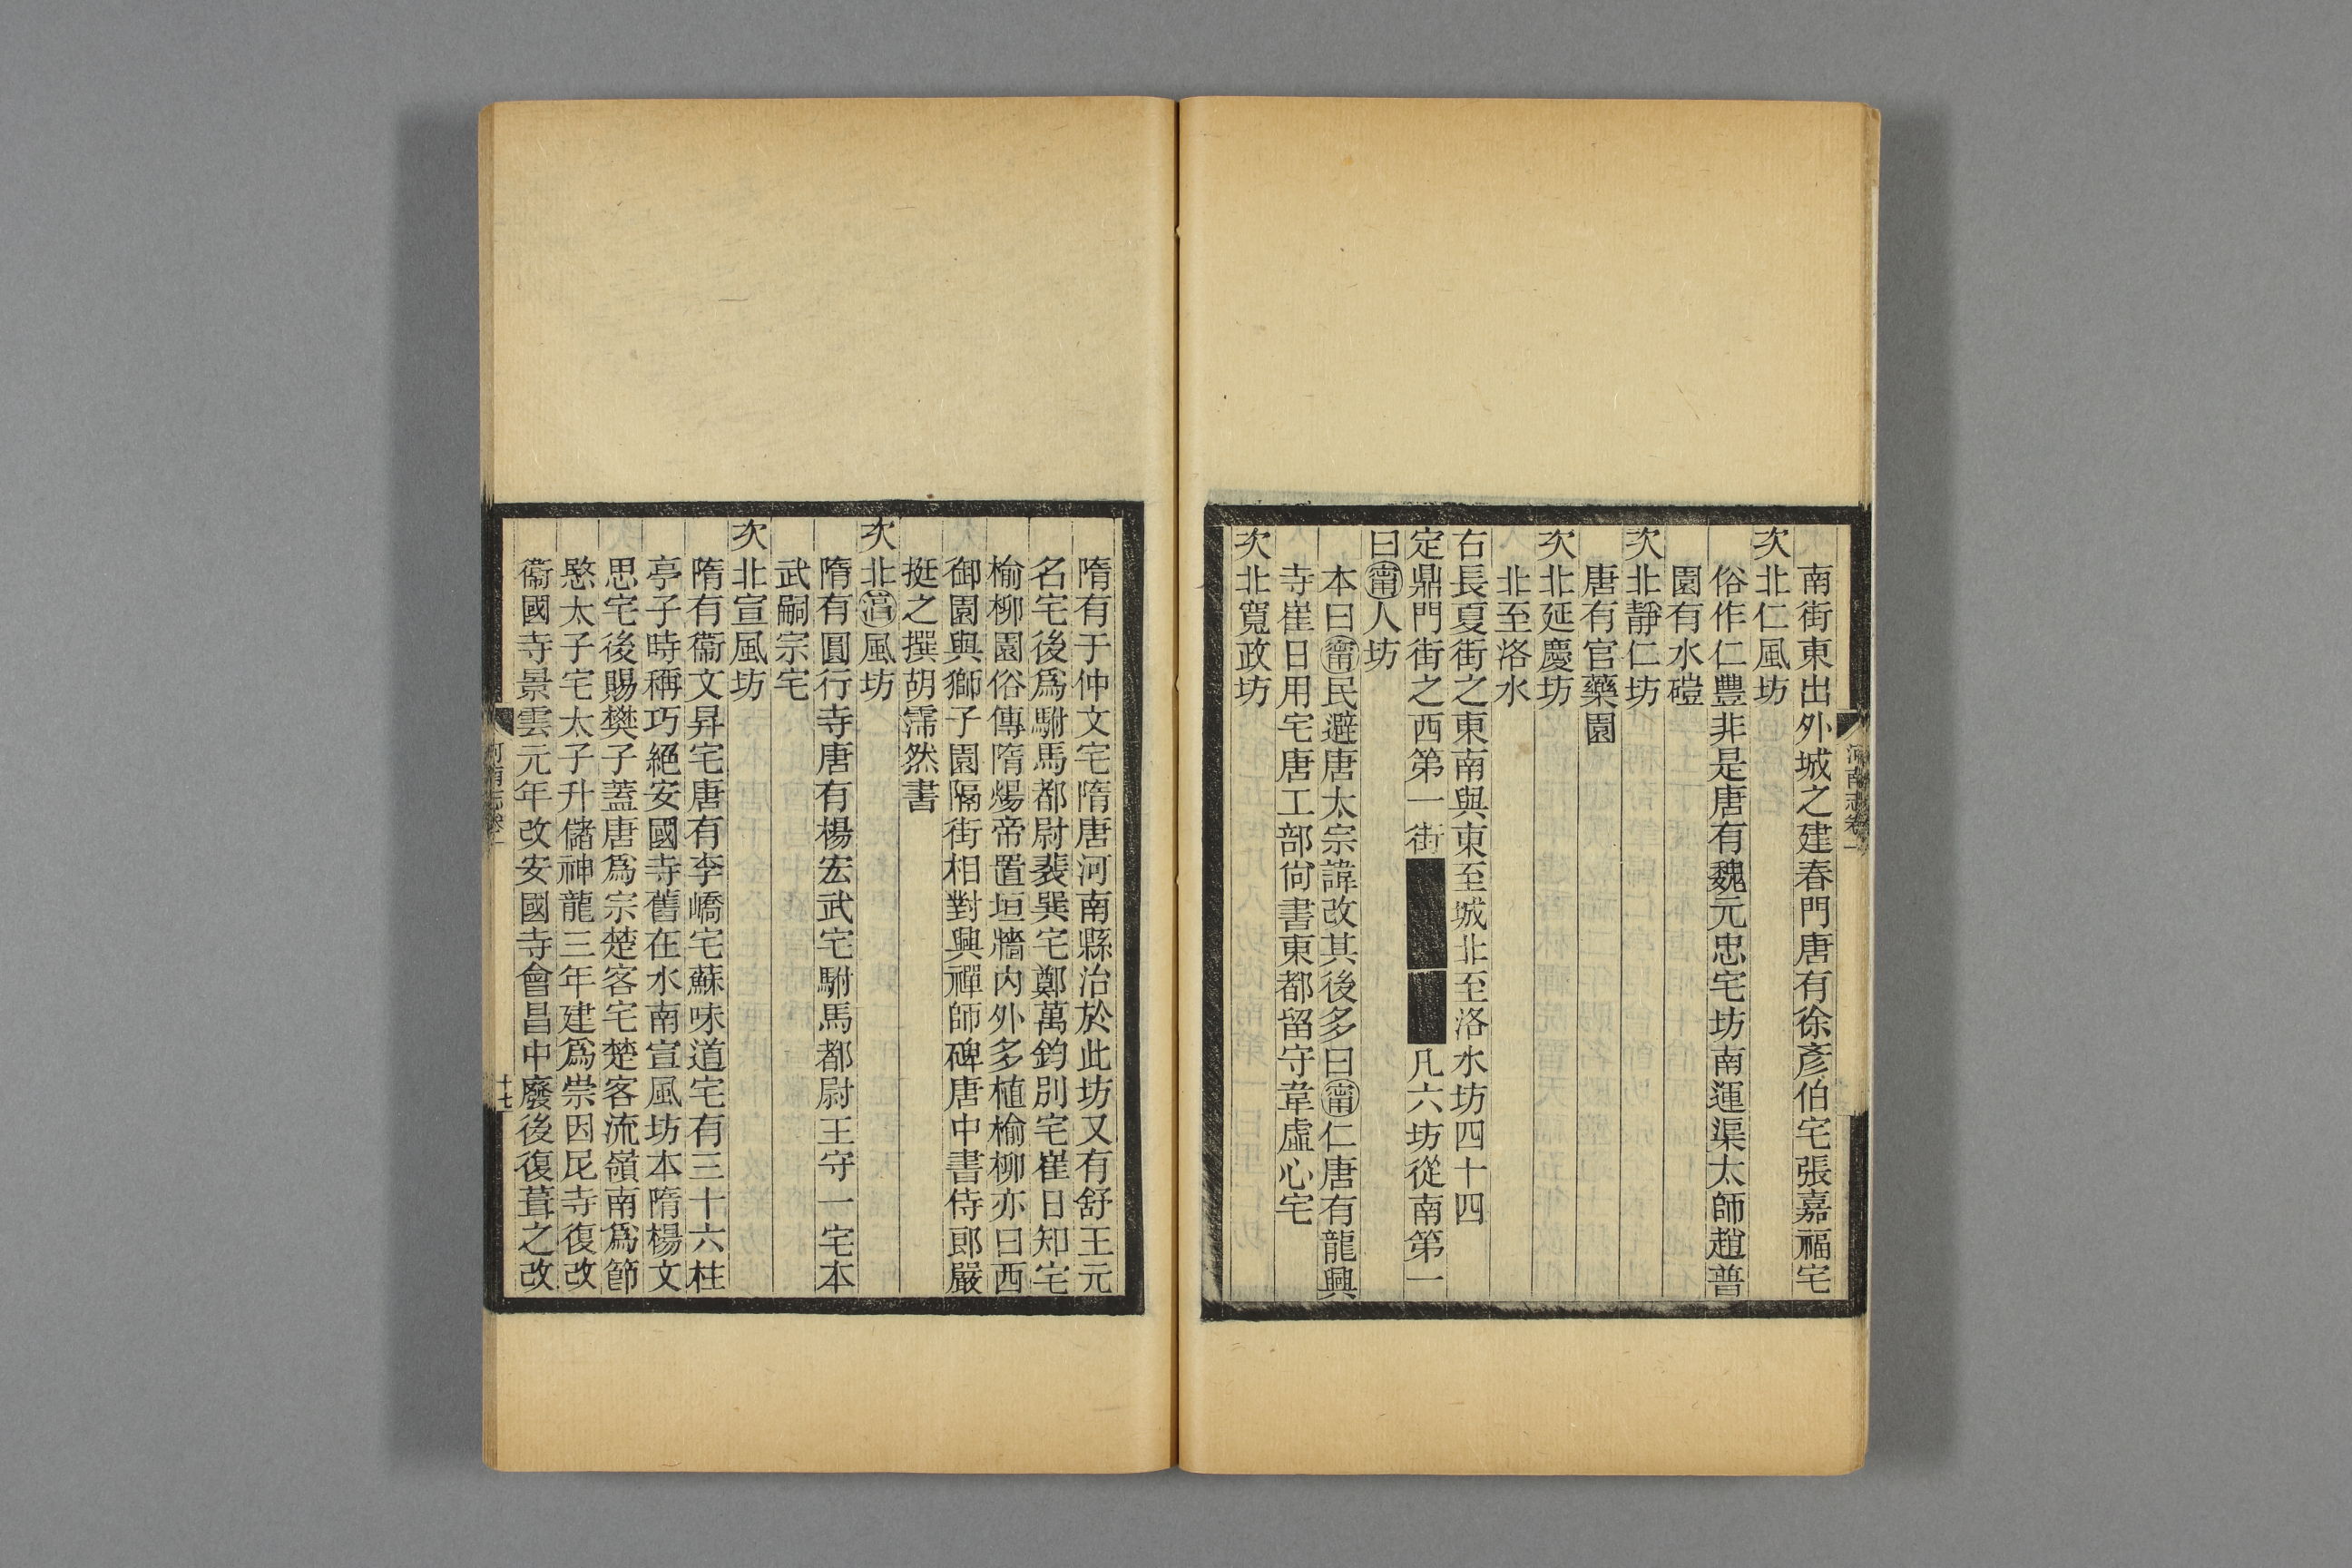 南街東出外城之建春門唐有徐彥伯宅張嘉福宅
次北仁風坊
俗作仁豐非是唐有魏元忠宅坊南運渠太師趙普
園有水磑
次北靜仁坊
唐有官藥園
次北延慶坊
北至洛水
右長夏街之東南與東至城北至洛水坊四十四
定鼎門街之西第一街凡六坊從南第一
曰甯人坊
本曰甯民避唐太宗諱改其後多曰甯仁唐有龍興
寺崔日用宅唐工部尙書東都留守韋虛心宅
次北寬政坊
隋有于仲文宅隋唐河南縣治於此坊又有舒王元
名宅後爲駙馬都尉裴巽宅鄭萬鈞別宅崔日知宅
榆柳園俗傳隋煬帝置垣牆內外多植榆柳亦曰西
御園與獅子園隔街相對興禪師碑唐中書侍郎嚴
挺之撰胡霈然書
次北淯風坊
隋有圓行寺唐有楊宏武宅駙馬都尉王守一宅本
武嗣宗宅
次北宣風坊
隋有衞文昇宅唐有李嶠宅蘇味道宅有三十六柱
亭子時稱巧絕安國寺舊在水南宣風坊本隋楊文
思宅後賜樊子蓋唐爲宗楚客宅楚客流嶺南爲節
愍太子宅太子升儲神龍三年建爲崇因尼寺復改
衞國寺景雲元年改安國寺會昌中廢後復葺之改
河南志卷一
十七